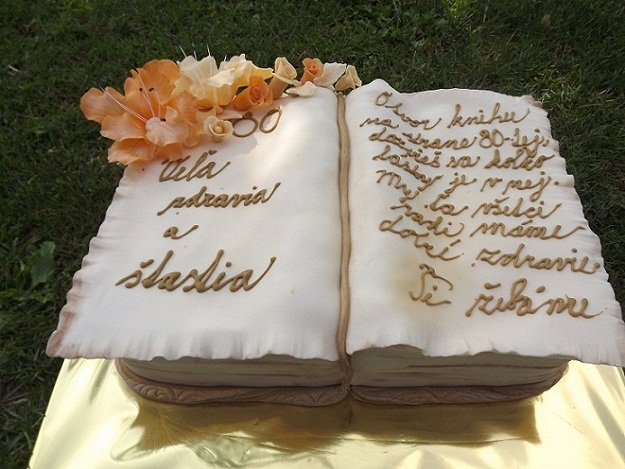 80
Veľa
zdravia
a
štastia
Otvor knihu
na strane 80-tej,
dozvieš sa koľko
lásky je v nej.
My ťa všetci
radi máme
dobré zdravie
Ti želáme